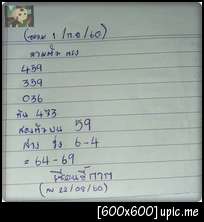 (งวด 1 /ก.ย/60)
สามตัว ตรง
439
339
036
กัน 433
สองตัวบน 59
ล่าง วิ่ง 6-4
= 64-69
(ณ 22/08/60)
[600x600] upic.me